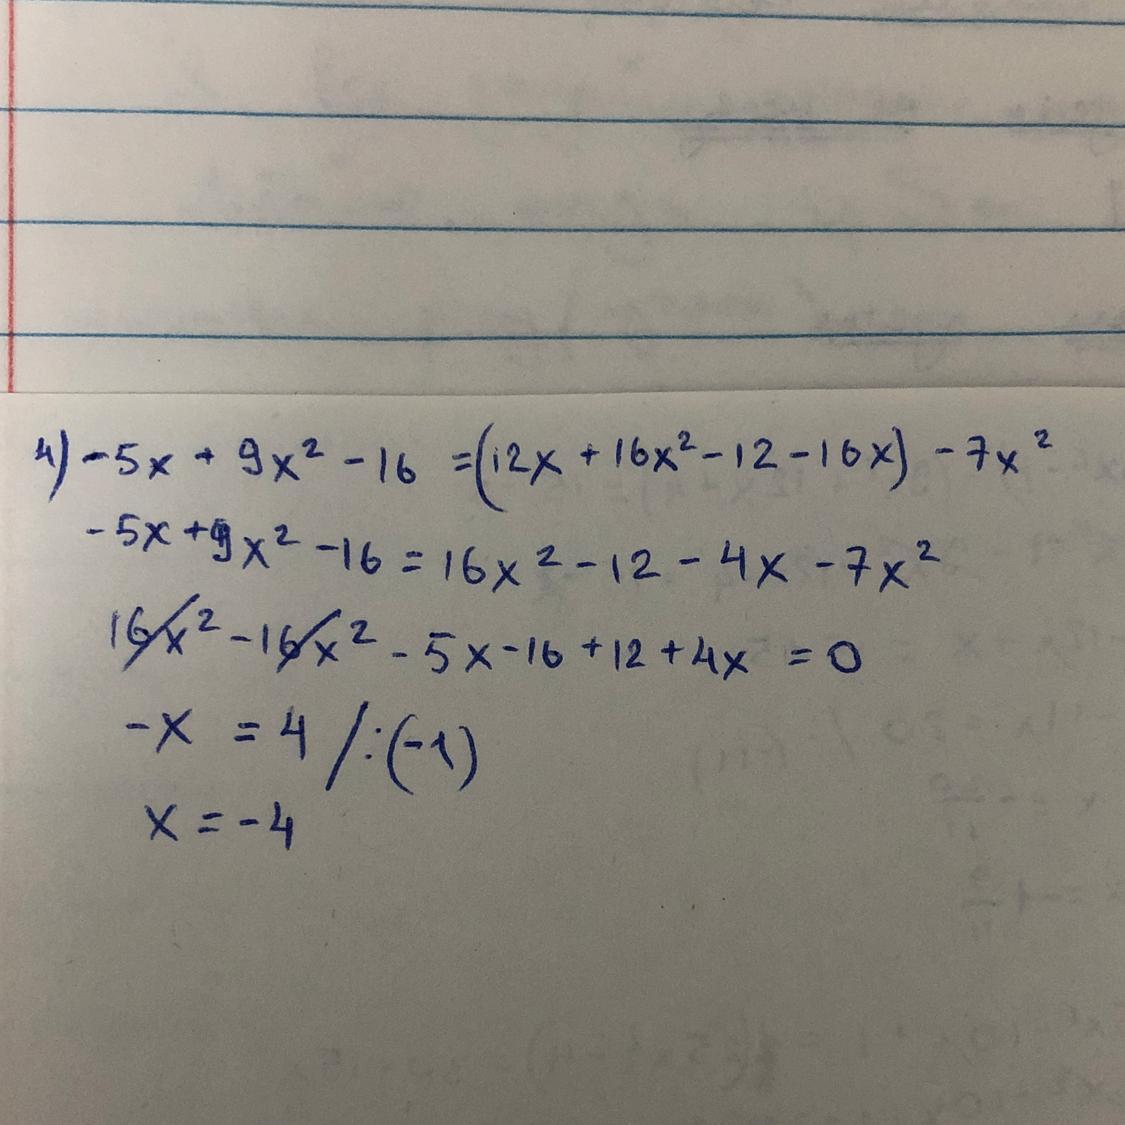 4) -5x + 9x² - 16 = (12x + 16x² - 12 - 16x) - 7x²
-5x + 9x² - 16 = 16x² - 12 - 4x - 7x²
16x² - 16x² - 5x - 16 + 12 + 4x = 0
-x = 4 /:(-1)
x = -4